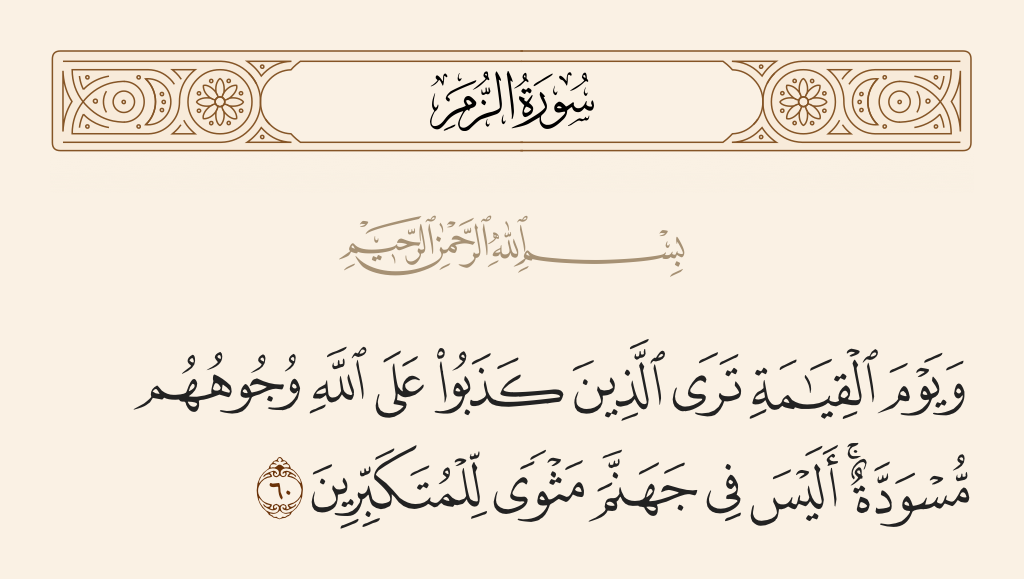 سُورَةُ الزُّمَرِ
بِسْمِ ٱللَّهِ ٱلرَّحْمَٰنِ ٱلرَّحِيمِ
وَيَوْمَ ٱلْقِيَـٰمَةِ تَرَى ٱلَّذِينَ كَذَبُوا۟ عَلَى ٱللَّهِ وُجُوهُهُم
مُّسْوَدَّةٌ ۚ أَلَيْسَ فِى جَهَنَّمَ مَثْوًى لِّلْمُتَكَبِّرِينَ ٦٠